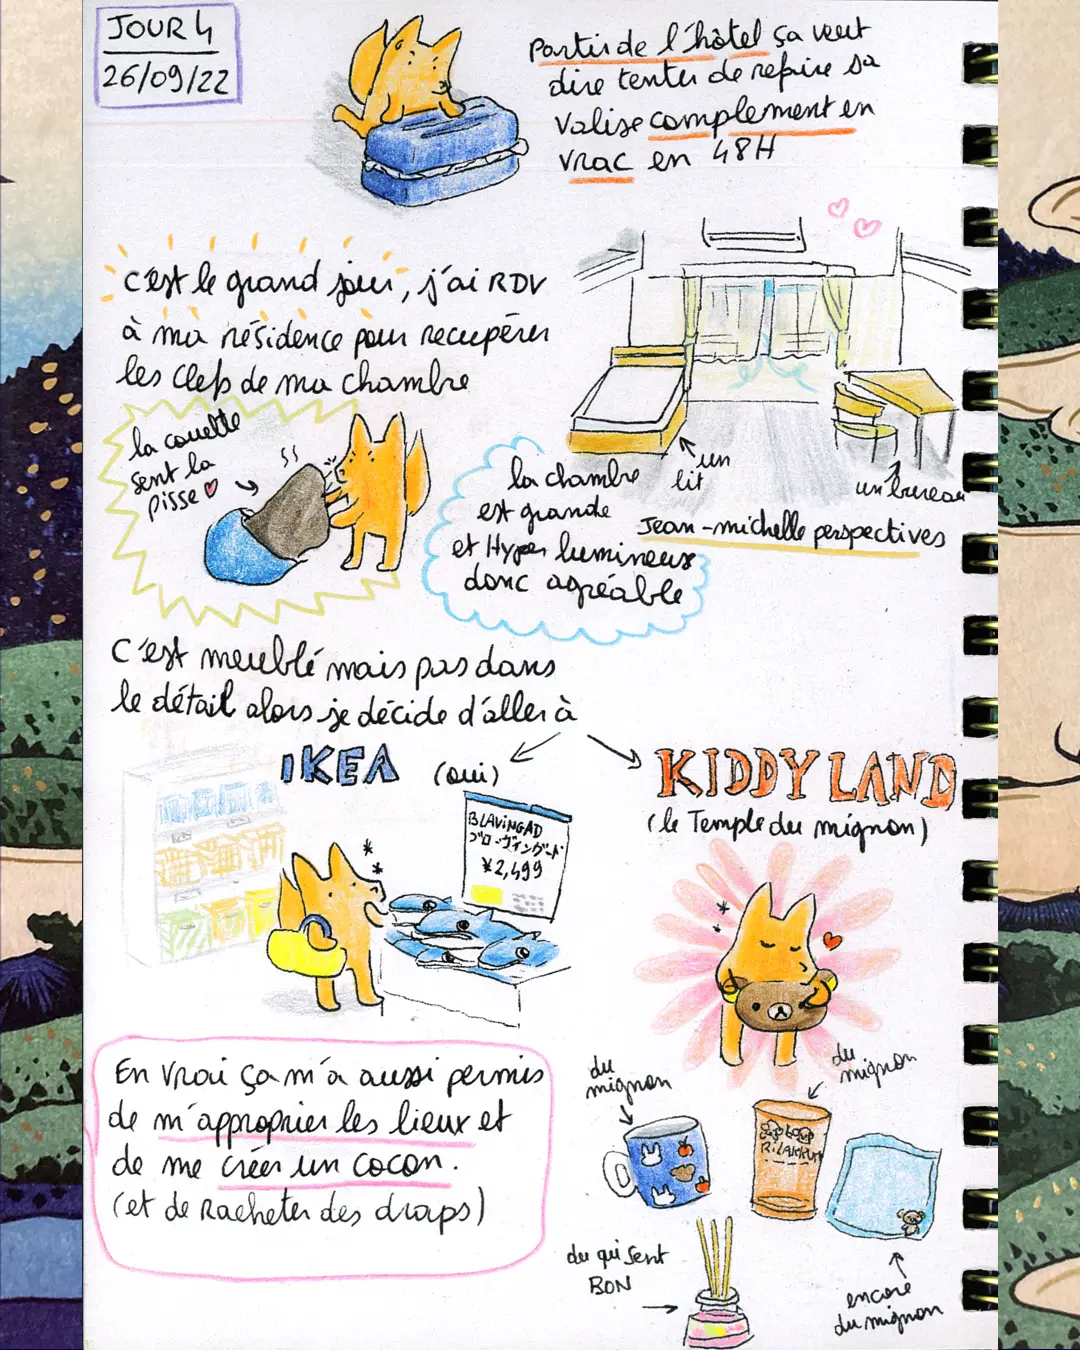 JOUR 4
26/09/22
Partir de l'hôtel ça veut
dire tenter de refaire sa
valise complement en
vrac en 48H
c'est le grand jour, j'ai RDV
à ma résidence pour recupérer
les clefs de ma chambre
la couette
sent la
pisse
un
lit
un bureau
Jean-michelle perspectives
la chambre
est grande
et Hyper lumineuse
donc agréable
C'est meublé mais pas dans
le détail alors je décide d'aller à
IKEA (oui)
BLAVINGAD
ブローヴィングード
¥2,499
KIDDY LAND
(le Temple du mignon)
En vrai ça m'a aussi permis
de m'approprier les lieux et
de me créer un cocon.
(et de racheter des draps)
du
mignon
du
mignon
RILAKKUMA
du qui sent
BON
encore
du mignon